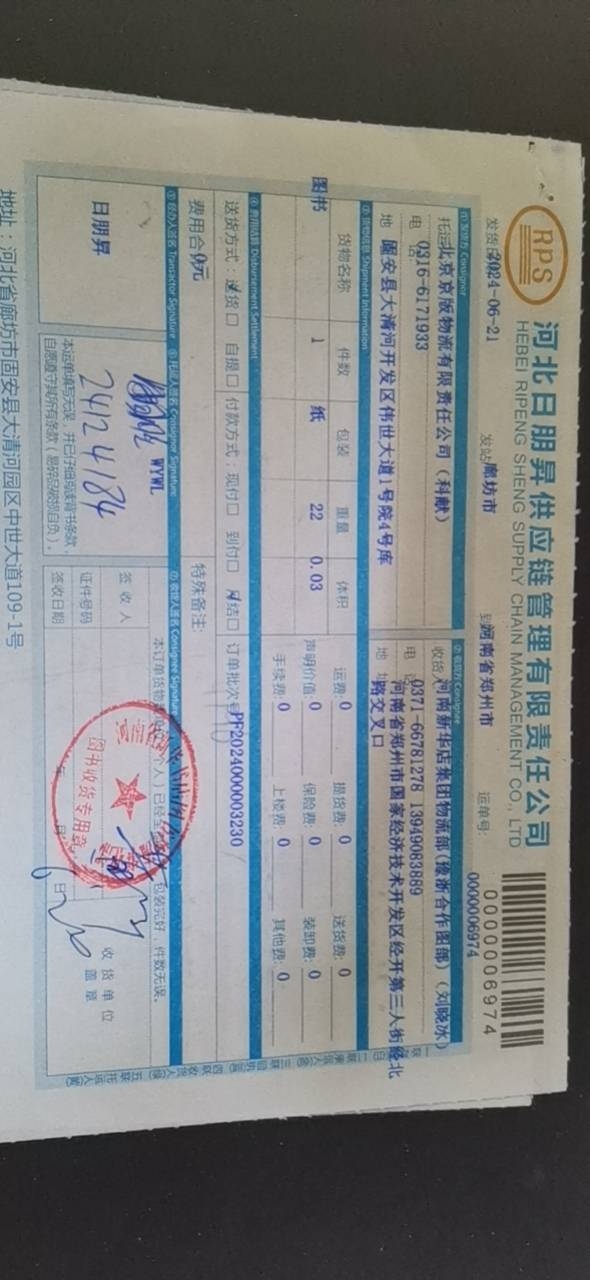 RPS
河北日朋昇供应链管理有限责任公司
HEBEI RIPENG SHENG SUPPLY CHAIN MANAGEMENT CO., LTD
0000006974
发货日期2024-06-21 发站廊坊市 到河南省郑州市 运单号: 0000006974
①发货方 Consignor
托运北京京版物流有限责任公司（科献）
电 0316-6171933
地 固安县大清河开发区伟世大道1号院4号库
②收货方 Consignee
收货 河南新华店集团物流部(豫浙合作图部)(刘晓冰)
电 0371-66781278 13949083889
地 河南省郑州市国家经济技术开发区经开第三人街经北
路交叉口
③货物信息 Shipment Information
货物名称 件数 包装 重量 体积
图书 1 纸 22 0.03
运费: 0 提货费: 0 送货费: 0
声明价值: 0 保险费: 0 装卸费: 0
手续费: 0 上楼费: 0 其他费: 0
④费用结算 Disbursement Settlement
送货方式: 送货□ 自提□ 付款方式: 现付□ 到付□ 月结□ 订单批次号PF2024000003230
费用合0元 特殊备注:
⑤经办人签名 Transactor Signature
日朋昇
⑥托运人签名 Consignor Signature
WYWL
24124184
本运单填写无误，并已仔细阅读背书条款，
自愿遵守其所有条款（易碎品破损自负）。
⑦收货人签名 Consignee Signature
本订单货物 个人）已经 包装完好，件数无误。
签收人
证件号码
签收日期 年 月 日
收货单位
盖章
图书收货专用章
地址：河北省廊坊市固安县大清河园区中世大道109-1号